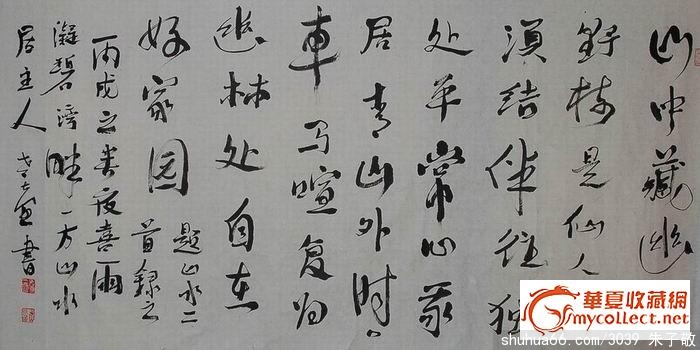 山中藏幽
野林是仙人
须结伴往独
处平常心家
居青山外时时
車马喧复归
幽林处自在
好家园
题山水二
首録之
丙戌之春夜喜雨
凝碧湾畔一方山水
居主人
書
華夏收藏網
mycollect.net
shuhua66.com/3039 朱子敬